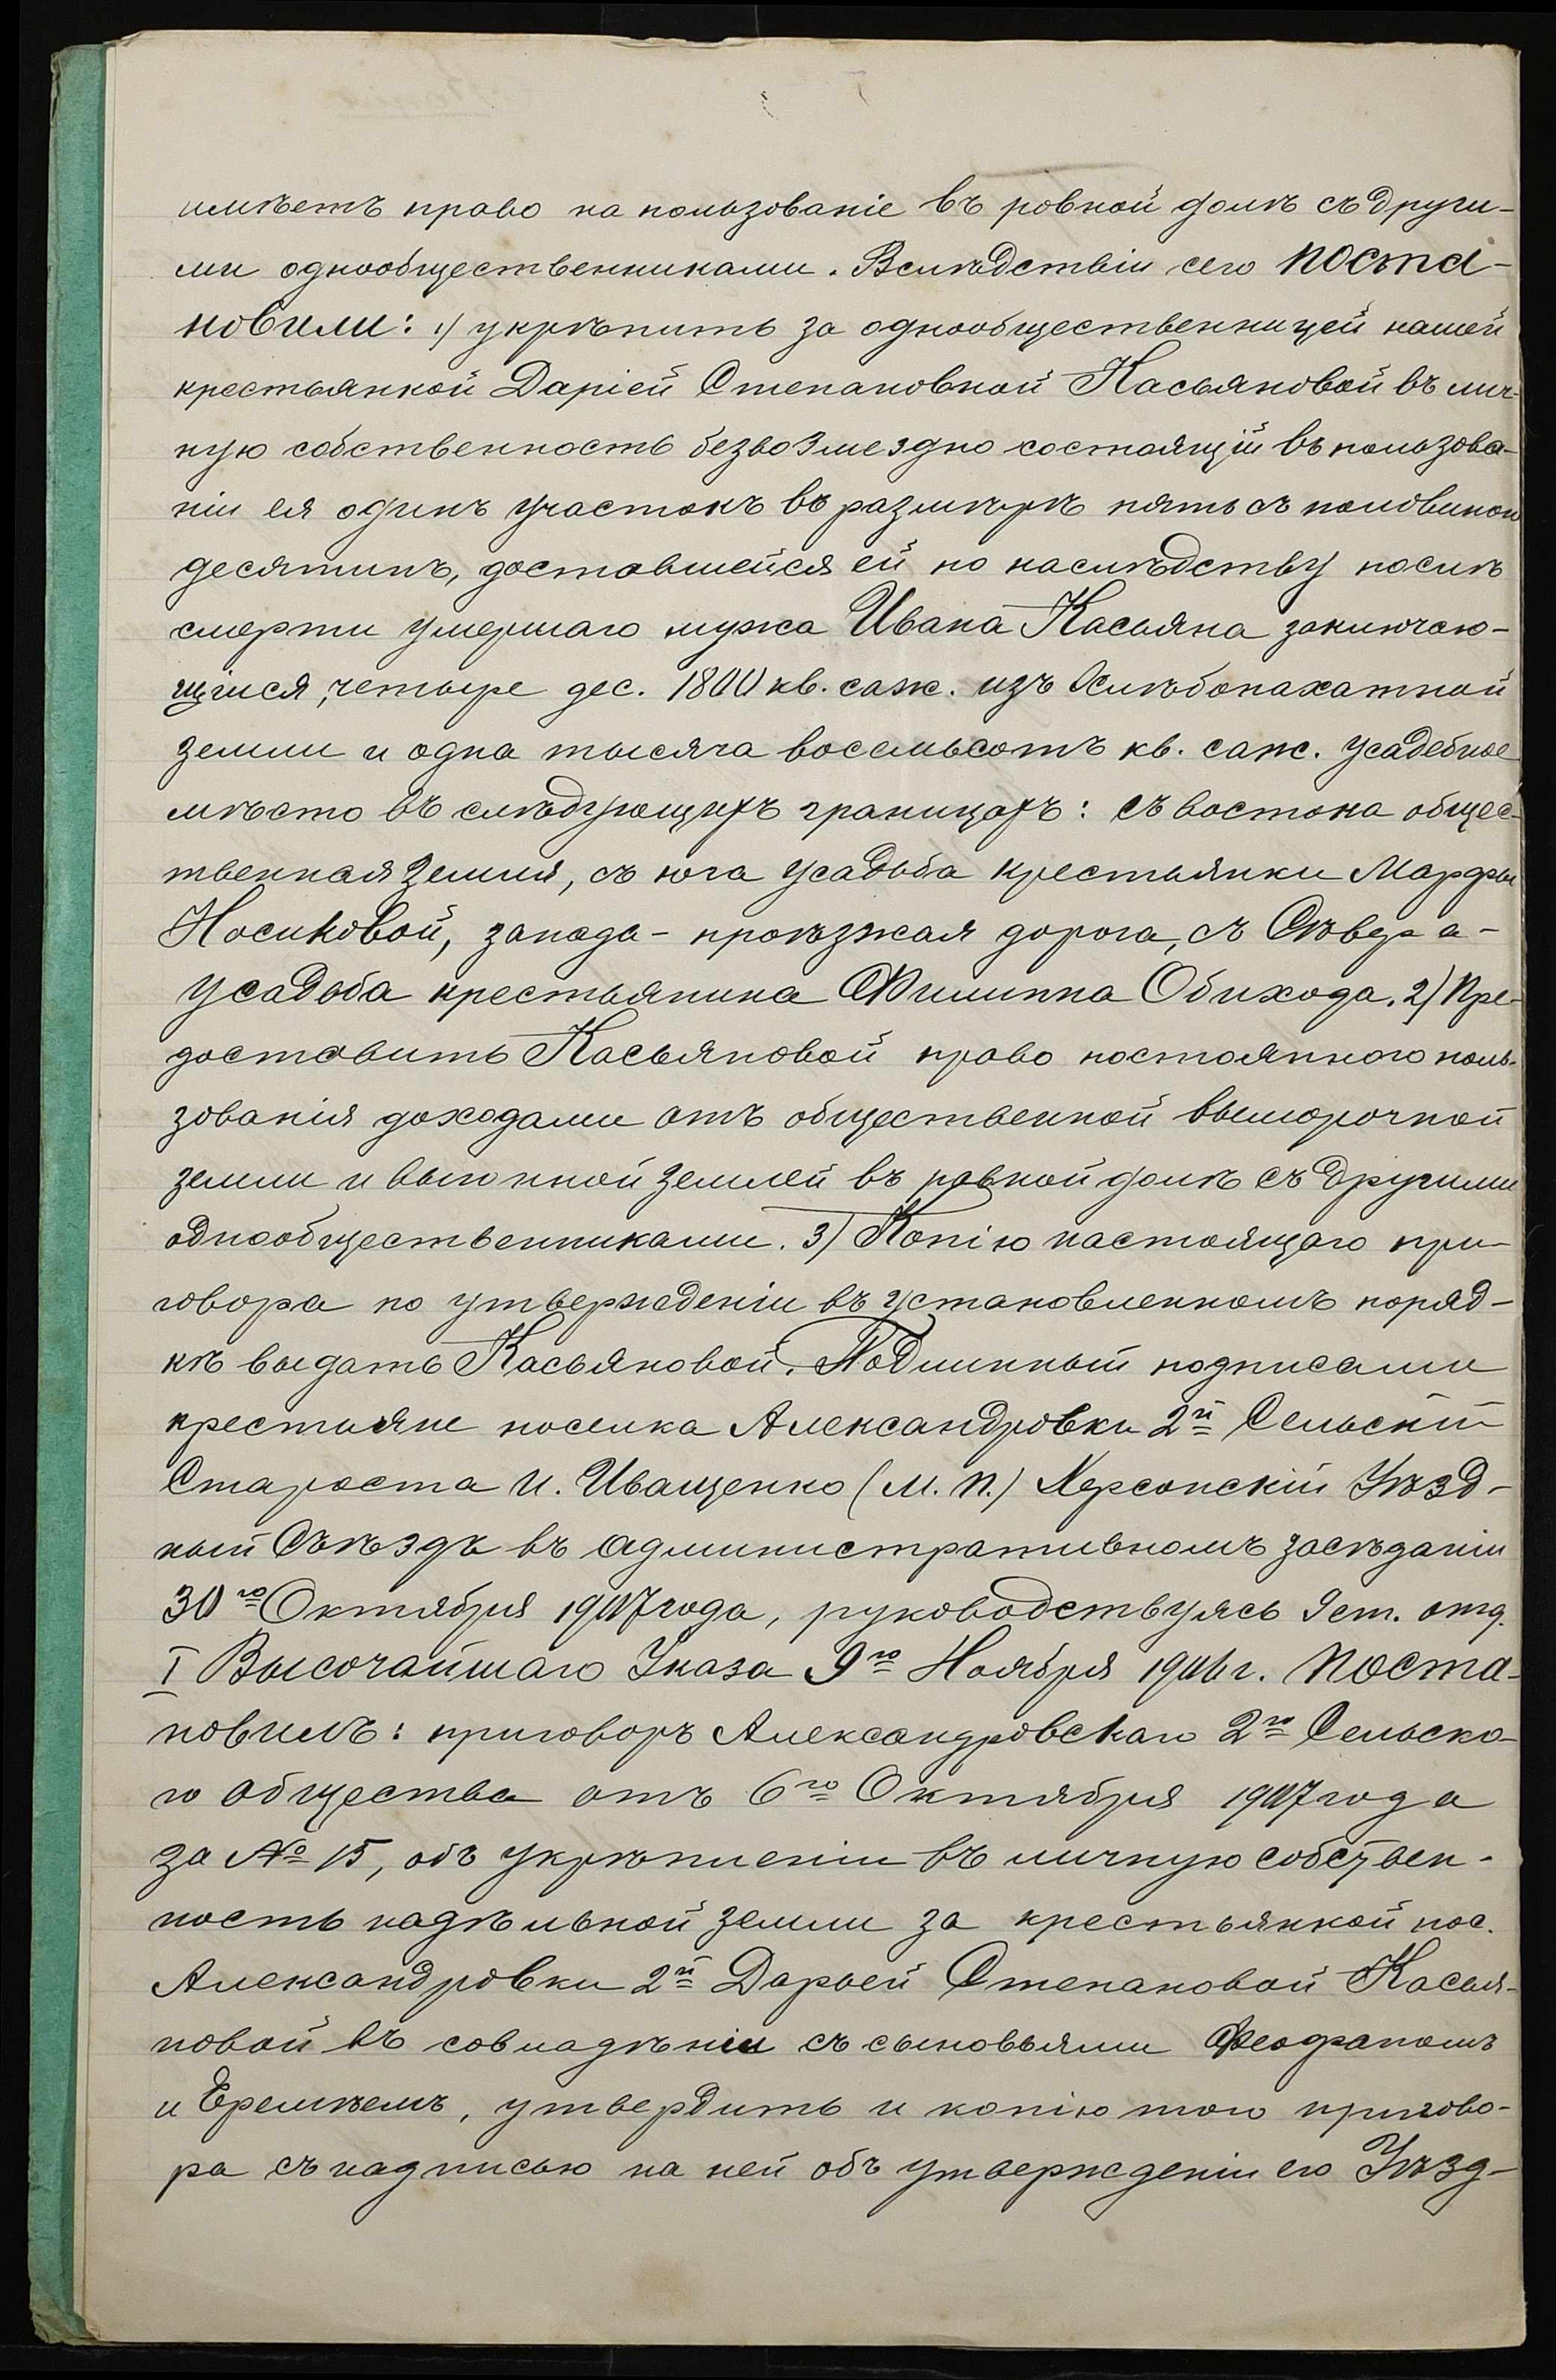 имѣетъ право на пользованіе въ ровной долѣ съ други-
ми однообщественниками. Вслѣдствіи сего поста-
новили: 1) укрѣпить за однообщественницей нашей
крестьянкой Даріей Степановной Касьяновой въ лич-
ную собственность безвозмездно состоящій въ пользова-
ніи ея одинъ участокъ въ размѣрѣ пять съ половиной
десятинъ, доставшейся ей по наслѣдству послѣ
смерти умершаго мужа Ивана Касьяна заключаю-
щійся, четыре дес. 1800 кв. саж. изъ хлѣбопахатной
земли и одна тысяча восемьсотъ кв. саж. усадебное
мѣсто въ слѣдующихъ границахъ: съ востока общес-
твенная земля, съ юга усадьба крестьянки Марфы
Носиковой, запада - проѣзжая дорога, съ Сѣвера -
усадьба крестьянина Филиппа Обихода. 2) Пре-
доставить Касьяновой право постоянного поль-
зованія доходами отъ общественной выморочной
земли и выгонной землей въ ровной долѣ съ другими
однообщественниками. 3) Копію настоящаго при-
говора по утвержденіи въ установленномъ поряд-
кѣ выдать Касьяновой. Подлинный подписали
крестьяне поселка Александровки 2й Сельскій
Староста И. Иващенко (М. П.) Херсонскій Уѣзд-
ный Съѣздъ въ административномъ засѣданіи
30го Октября 1907 года, руководствуясь 9 ст. отд.
I Высочайшаго Указа 9го Ноября 1906 г. поста-
новилъ: приговоръ Александровскаго 2го Сельска-
го общества отъ 6го Октября 1907 года
за № 15, объ укрѣпленіи въ личную собствен-
ность надѣльной земли за крестьянкой пос.
Александровки 2й Дарьей Степановой Касья-
новой въ совладѣніи съ сыновьями Феофаномъ
и Еремѣемъ, утвердить и копію того пригово-
ра съ надписью на ней объ утвержденіи его Уѣзд-